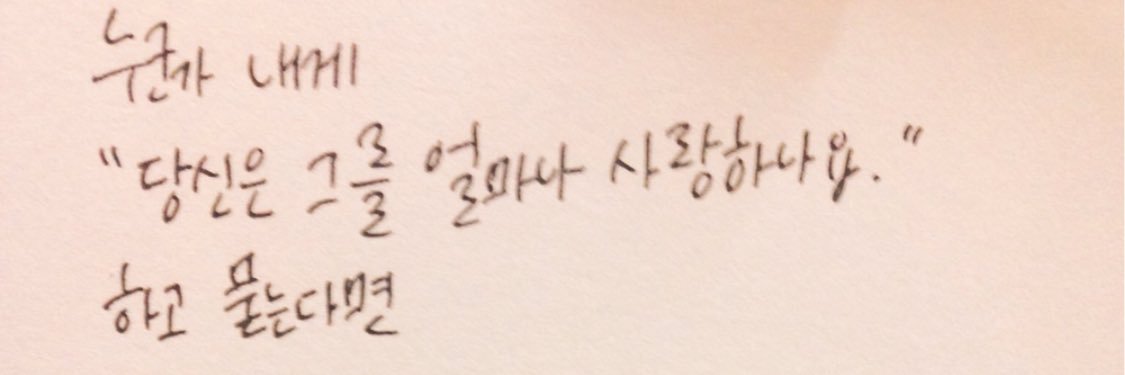 누군가 내게
"당신은 그를 얼마나 사랑하나요."
하고 묻는다면